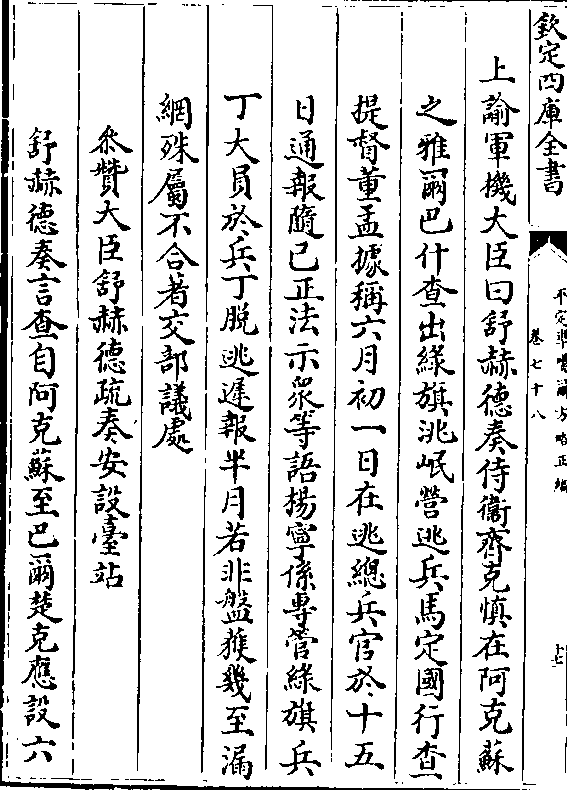 欽定四庫全書
平定準噶爾方略正編
卷七十八
十七
上諭軍機大臣曰舒赫德奏侍衞齊克慎在阿克蘇
之雅爾巴什查出綠旗洮岷營逃兵馬定國行查
提督董孟據稱六月初一日在逃總兵官於十五
日通報隨已正法示衆等語楊寧係專管綠旗兵
丁大員於兵丁脫逃遲報半月若非盤獲幾至漏
網殊屬不合著交部議處
叅贊大臣舒赫德疏奏安設臺站
舒赫德奏言查自阿克蘇至巴爾楚克應設六